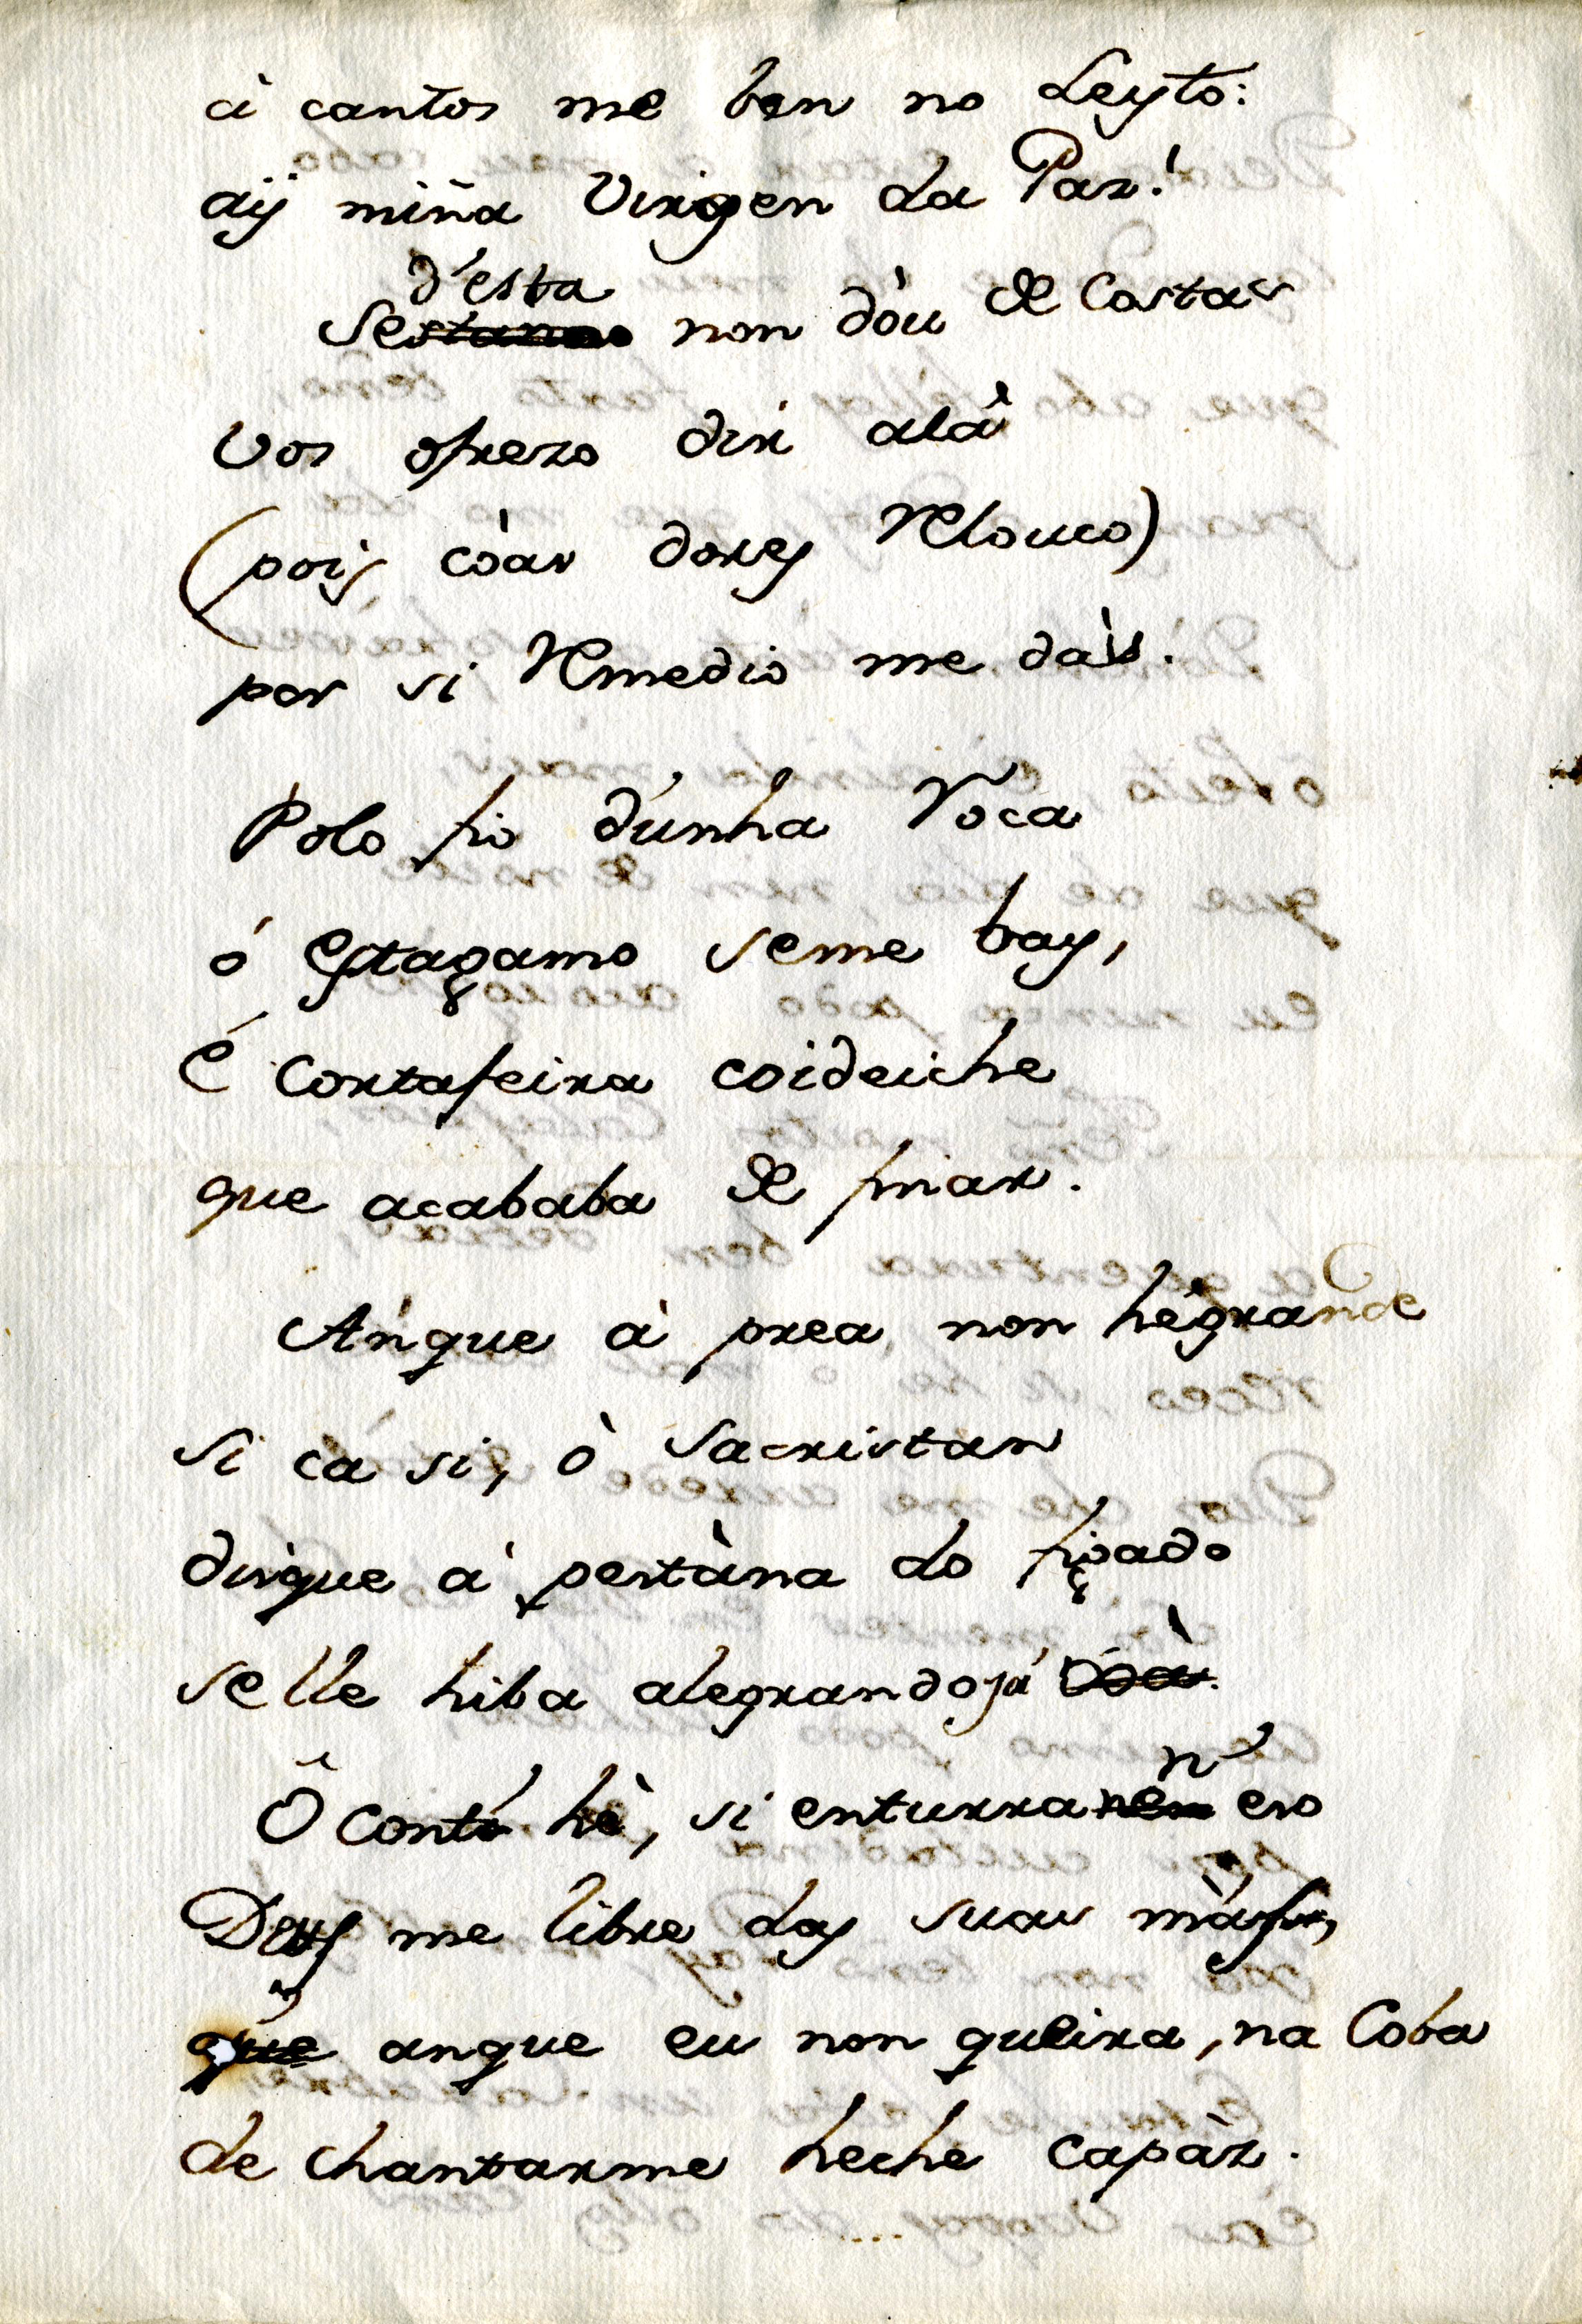 à cantos me ben no Leyto:
aÿ miña Virgen da Paz!
d'esta
Se non dòu de Costas
vos ofrezo dir alà
(pois còas dores Relouco)
por si Remedio me dàis.
Polo fio d'unha Roca
ó estaga̧mo seme bay,
é Cortafeira coideiche
que acababa de fiñar.
Anque à prea non hégrande
si cá si, ò Sacristan
disque á pestàna do figa̧do
selle hiba alegrando já
Ô conto hè, si enturra n eso
Deus me libre das suas màns,
anque eu non queira, na Coba
de chantarme heche capàz.